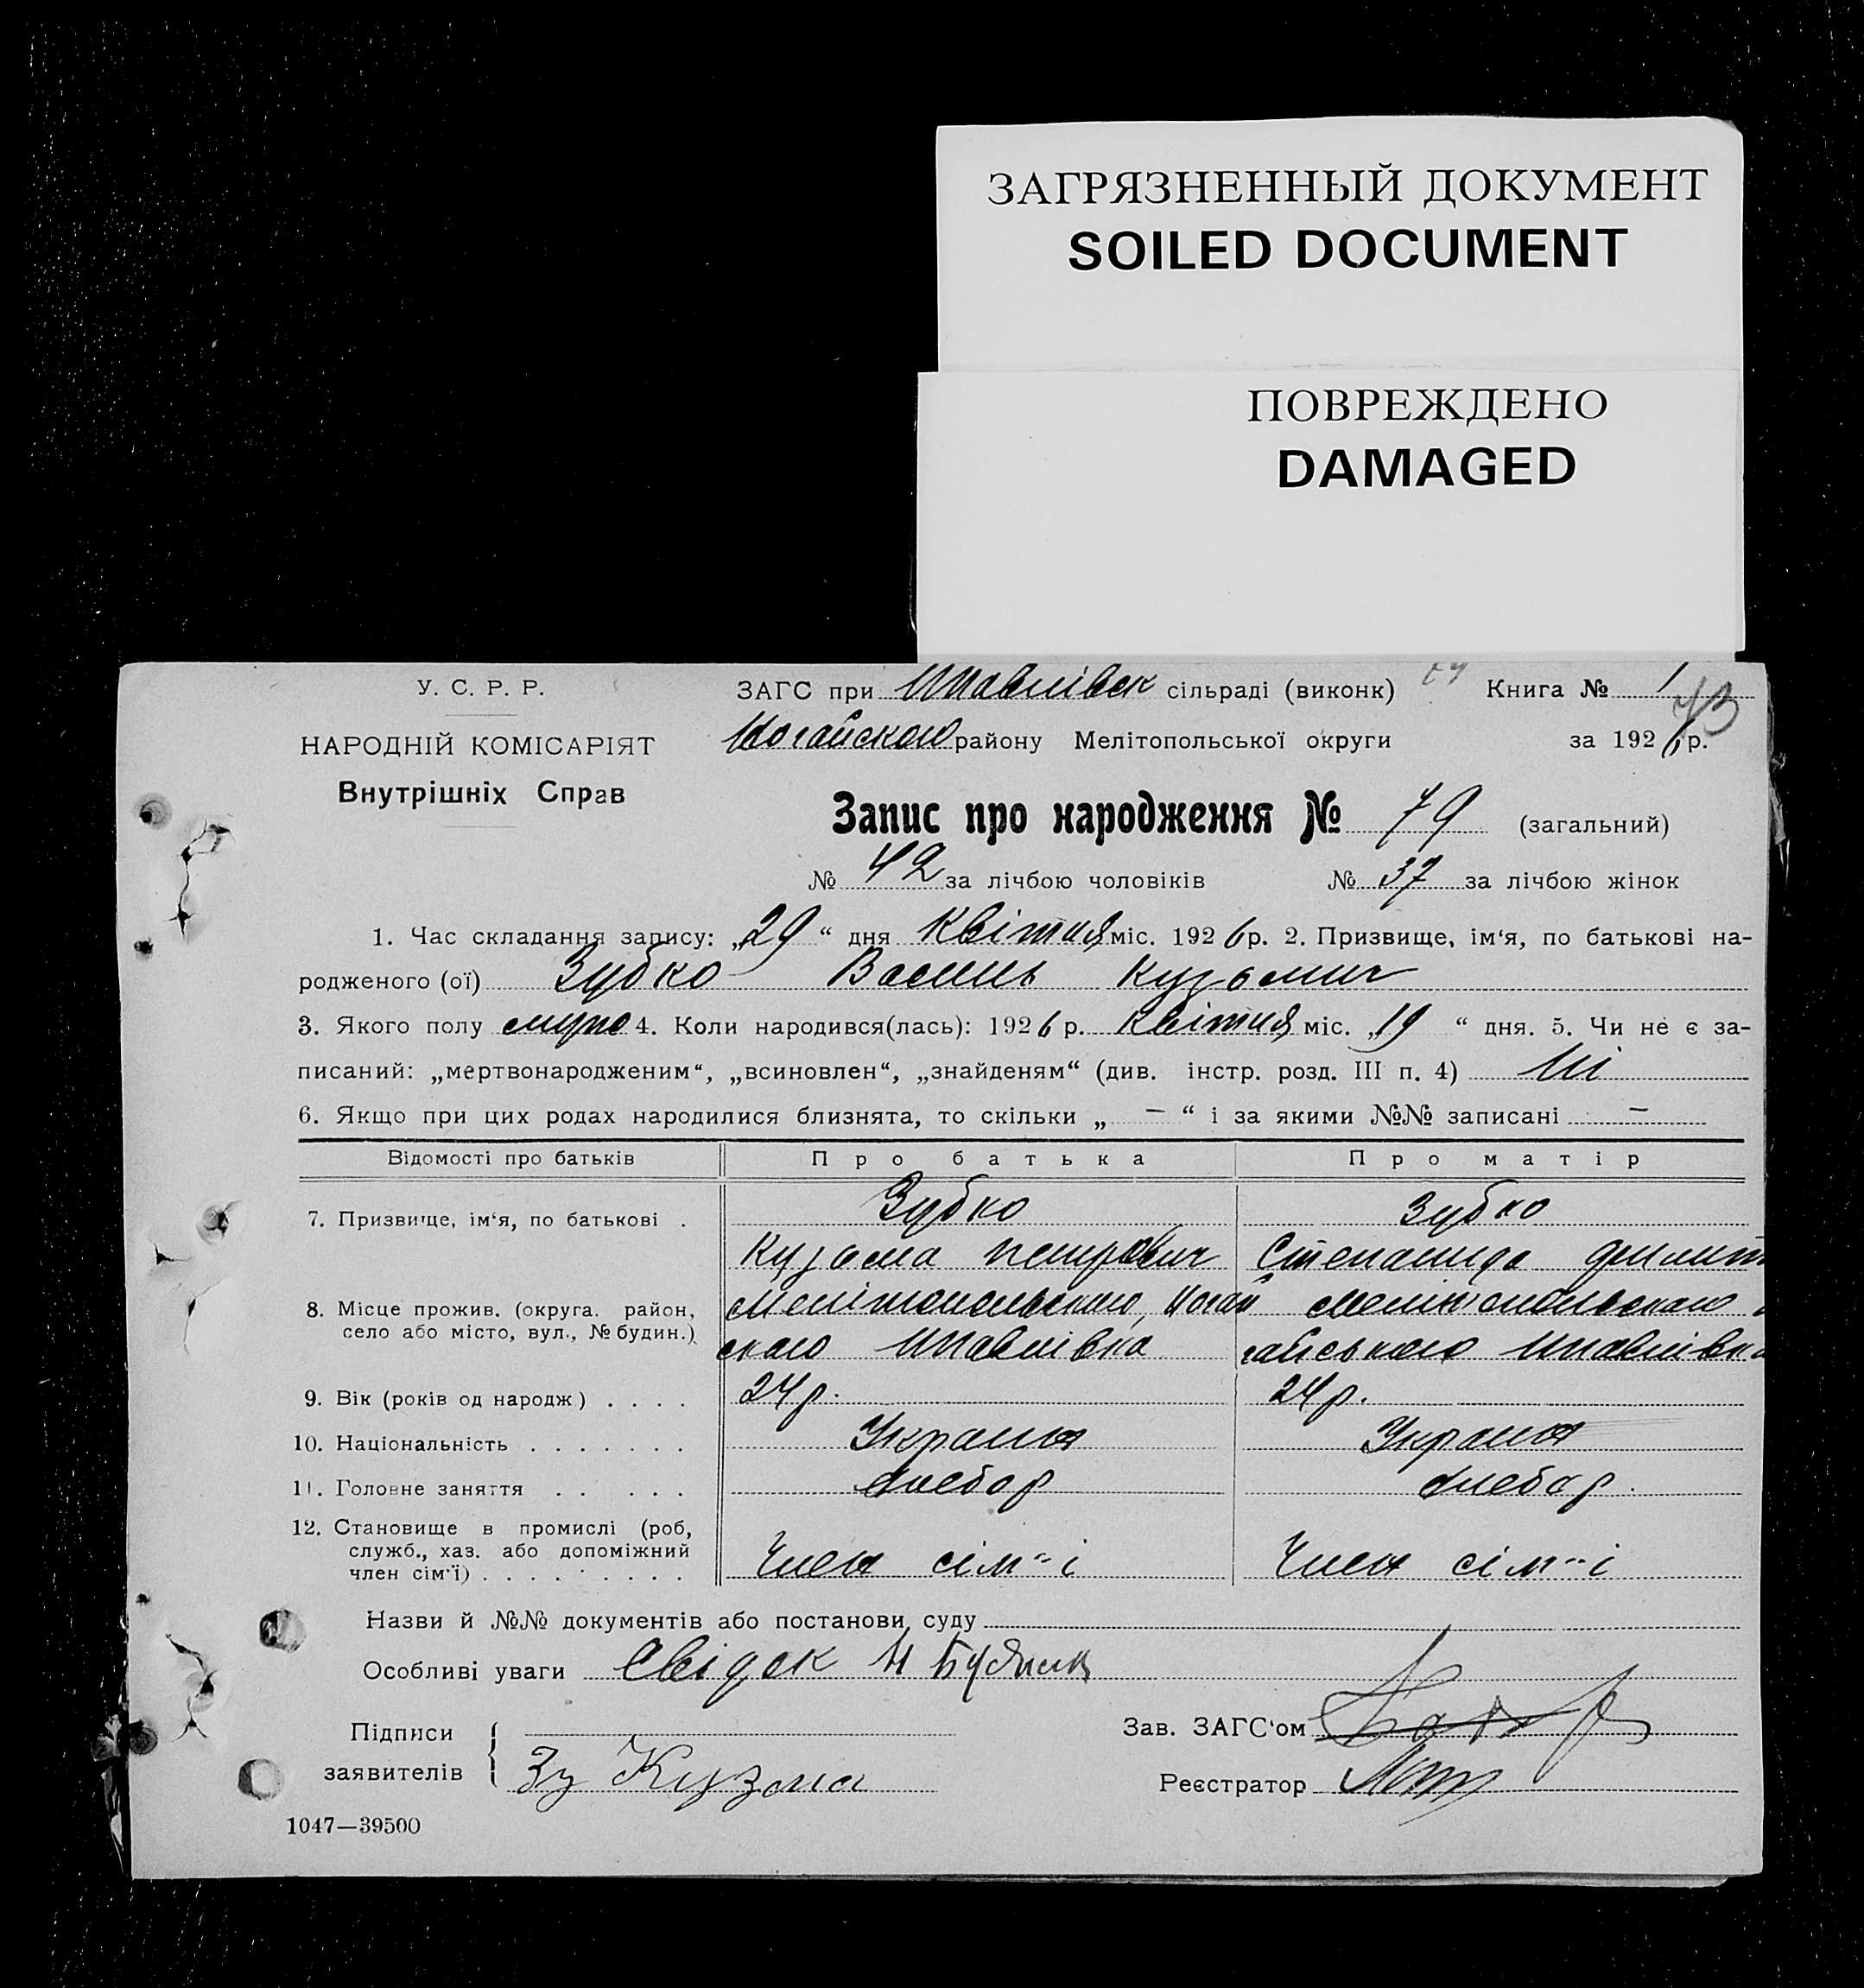 ЗАГРЯЗНЕННЫЙ ДОКУМЕНТ
SOILED DOCUMENT
ПОВРЕЖДЕНО
DAMAGED
У. С. Р. Р.
НАРОДНІЙ КОМІСАРІЯТ
Внутрішніх Справ
ЗАГС при сільраді (виконк) Книга № 1
73
району Мелітопольської округи за 1926 р.
Запис про народження № 79 (загальний)
№ 42 за лічбою чоловіків № 37 за лічбою жінок
1. Час складання запису: „29“ дня Квітня міс. 1926 р. 2. Призвище, ім‘я, по батькові на-
родженого (ої) Зубко Василь Кузьмич
3. Якого полу 4. Коли народився(лась): 1926 р. Квітня міс. „19“ дня. 5. Чи не є за-
писаний: „мертвонародженим“, „всиновлен“, „знайденям“ (див. інстр. розд. III п. 4) Ні
6. Якщо при цих родах народилися близнята, то скільки „ — “ і за якими №№ записані —
Відомості про батьків Про батька Про матір
7. Призвище, ім‘я, по батькові . Зубко Зубко
Кузьма Петрович Степанида
8. Місце прожив. (округа. район,
село або місто, вул., № будин.)
9. Вік (років од народж) . . . . 24 р. 24 р.
10. Національність . . . . . . . Украин Украин
11. Головне заняття . . . . . хлебор хлебор.
12. Становище в промислі (роб,
служб., хаз. або допоміжний
член сім‘ї) . . . . . . . . . Член сім"і Член сім"і
Назви й №№ документів або постанови суду
Особливі уваги Свідок Н
Підписи
заявителів Зу Кузма
Зав. ЗАГС‘ом
Реєстратор
1047—39500